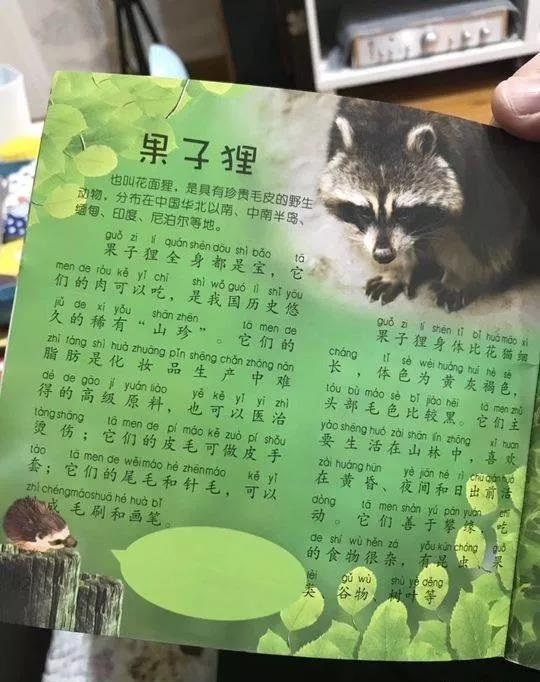 果子狸
也叫花面狸，是具有珍贵毛皮的野生
动物，分布在中国华北以南、中南半岛、
缅甸、印度、尼泊尔等地。
guǒ zi lí quán shēn dōu shì bǎo tā
果子狸全身都是宝，它
men de ròu kě yǐ chī shì wǒ guó lì shǐ yōu
们的肉可以吃，是我国历史悠
jiǔ de xī yǒu shān zhēn tā men de
久的稀有“山珍”。它们的
zhī fáng shì huà zhuāng pǐn shēng chǎn zhōng nán
脂肪是化妆品生产中难
dé de gāo jí yuán liào yě kě yǐ yī zhì
得的高级原料，也可以医治
tàng shāng tā men de pí máo kě zuò pí shǒu
烫伤；它们的皮毛可做皮手
tào tā men de wěi máo hé zhēn máo kě yǐ
套；它们的尾毛和针毛，可以
zhì chéng máo shuā hé huà bǐ
制成毛刷和画笔。
guǒ zi lí shēn tǐ bǐ huā māo xì
果子狸身体比花猫细
cháng tǐ sè wéi huáng huī hè sè
长，体色为黄灰褐色，
tóu bù máo sè bǐ jiào hēi tā men zhǔ
头部毛色比较黑。它们主
yào shēng huó zài shān lín zhōng xǐ huan
要生活在山林中，喜欢
zài huáng hūn yè jiān hé rì chū qián huó
在黄昏、夜间和日出前活
dòng tā men shàn yú pān yuán chī
动。它们善于攀缘，吃
de shí wù hěn zá yǒu kūn chóng guǒ
的食物很杂，有昆虫、果
lèi gǔ wù shù yè děng
类、谷物、树叶等